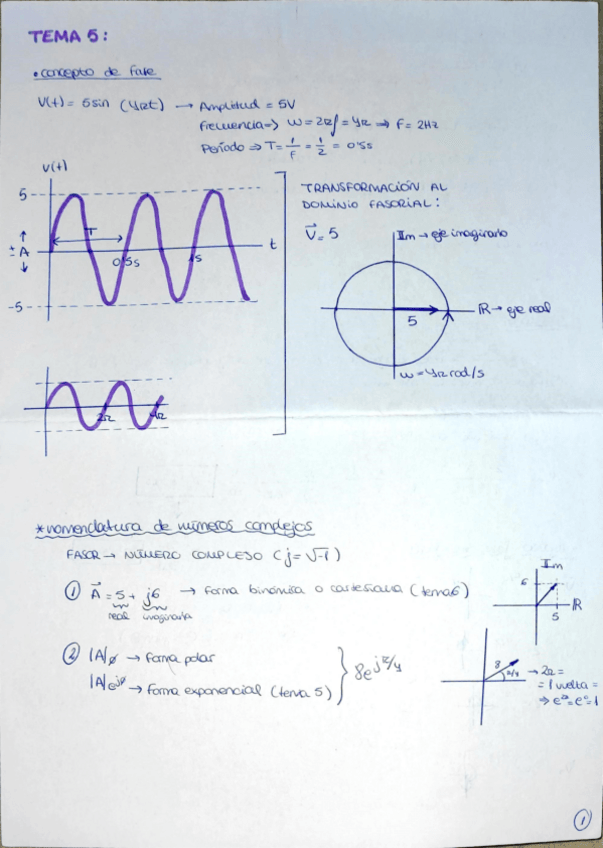 TEMA 5:
• concepto de fase
V(t) = 5sin (4πt) → Amplitud = 5V
Frecuencia => ω = 2πf = 4π => F = 2Hz
Período => T = 1/f = 1/2 = 0'5s
V(t)
5
± A
T
0'5s
1s
t
-5
2π
4π
TRANSFORMACIÓN AL
DOMINIO FASORIAL:
V⃗ = 5
Im → eje imaginario
5
ℝ → eje real
ω = 4π rad/s
* nomenclatura de números complejos
FASOR → NÚMERO COMPLEJO (j = √-1)
① A⃗ = 5 + j6 → forma binómica o cartesiana (tema 6)
real imaginaria
Im
6
ℝ
5
② |A|ø → forma polar
|A|e^jø → forma exponencial (tema 5)
8e^jπ/4
8
π/4
→ 2π =
= 1 vuelta =
1